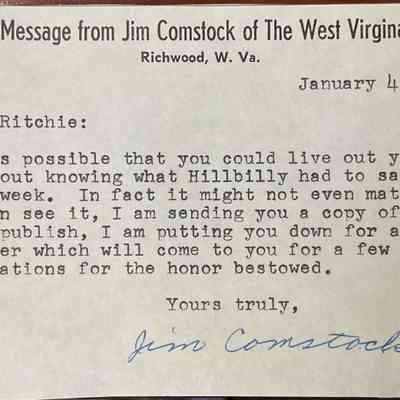 Message from Jim Comstock of The West Virgina
Richwood, W. Va.
January 4
Ritchie:
s possible that you could live out y
out knowing what Hillbilly had to sa
week. In fact it might not even mat
n see it, I am sending you a copy of
publish, I am putting you down for a
er which will come to you for a few
ations for the honor bestowed.
Yours truly,
Jim Comstock